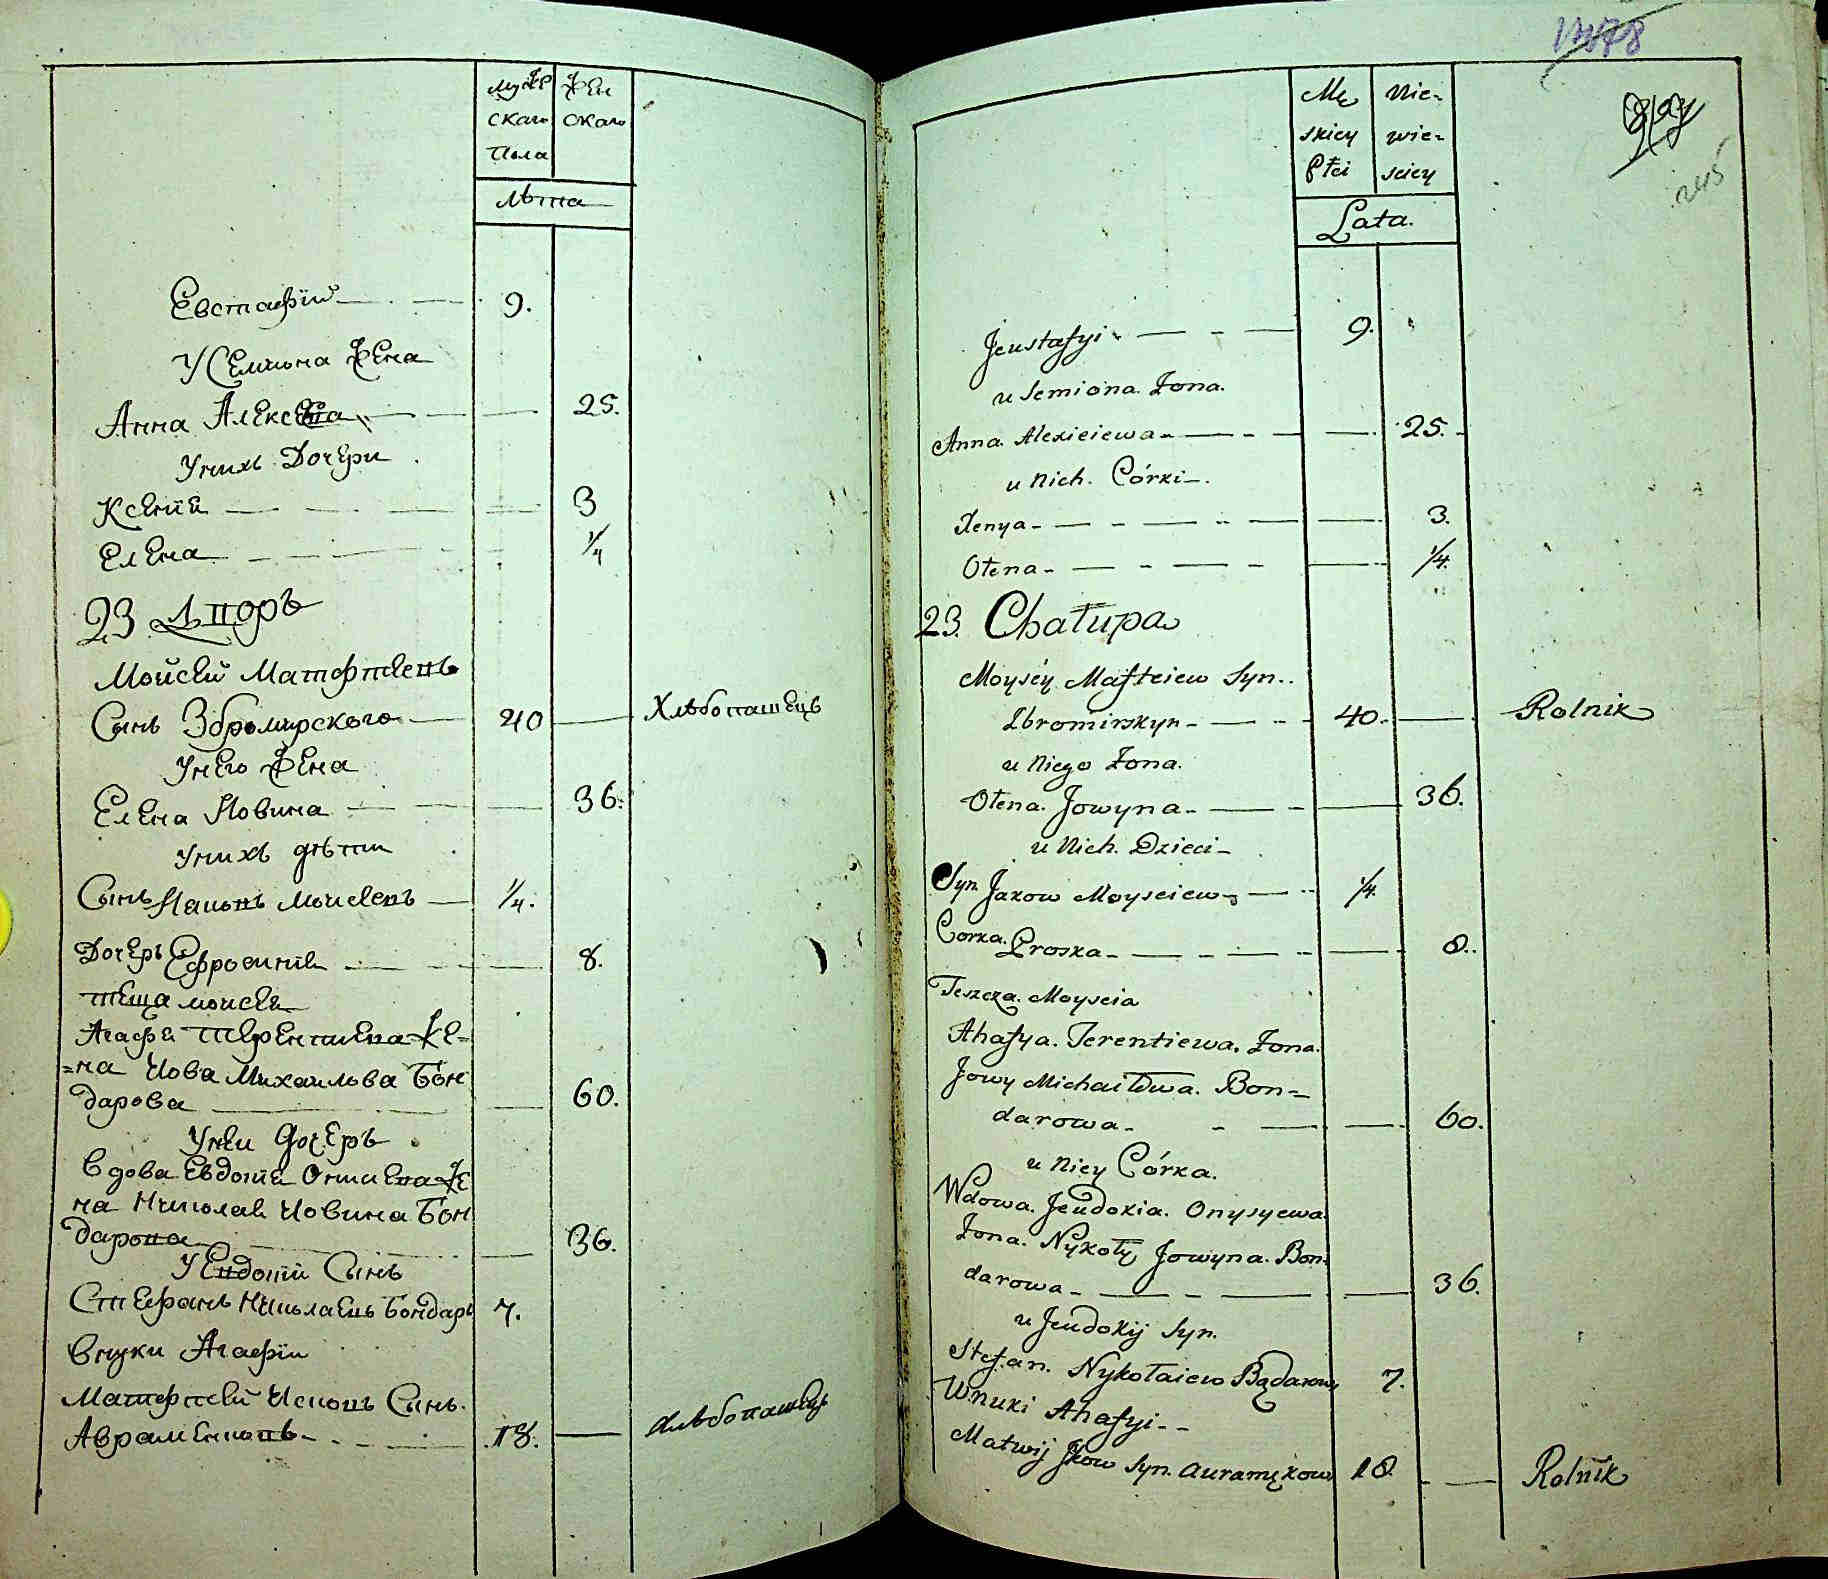 Мужескаго Пола
Женскаго
Лѣта
Евстафій 9.
У Семиона Жена
Анна Алексева 25.
У нихъ Дочери
Ксенія 3
Елена 1/4
23 Дворъ
Мойсей Матфеевъ
Сынъ Збромирского 40 Хлѣбопашецъ
У него Жена
Елена Иовина 36.
У нихъ дѣти
Сынъ Иаковъ Моисеевъ 1/4.
Дочерь Ефросинія 8.
теща Моисея
Агафія Терентиева Же=
=на Иова Михаилова Бон
дарова 60.
У неи Дочерь
Вдова Евдокія Онисиева Же
на Николая Иовина Бон
дарова 36.
У Евдокіи Сынъ
Стефанъ Николаевъ Бондарь 7.
Внуки Агафіи
Матфеей Исковъ Сынъ.
Авраменковъ 18. Хлѣбопашецъ
178
245
Mę skiey Płci
Nie- wie- sciey
Lata.
Jeustafyi 9.
u Semiona Zona.
Anna. Alexieiewa 25.
u nich. Córki.
Xenya 3.
Ołena 1/4.
23. Chałupa
Moyséy Mafteiew Syn..
Zbromirskyn 40. Rolnik
u niego Zona.
Ołena. Jowyna 36.
u Nich. Dzieci
Syn Jakow Moyseiew 1/4
Corka. Proska 8.
Teszcza. Moyseia
Ahafya. Terentiewa. Zona.
Jowy Michaiłowa. Bon=
darowa 60.
u niey Córka.
Wdowa. Jeudokia. Onysyewa.
Zona. Nykoły Jowyna. Bon.
darowa 36.
u Jeudokij Syn.
Stefan. Nykołaiew Bądarow 7.
Wnuki Ahafyi
Matwij Jkow Syn. Auramękow 18 Rolnik